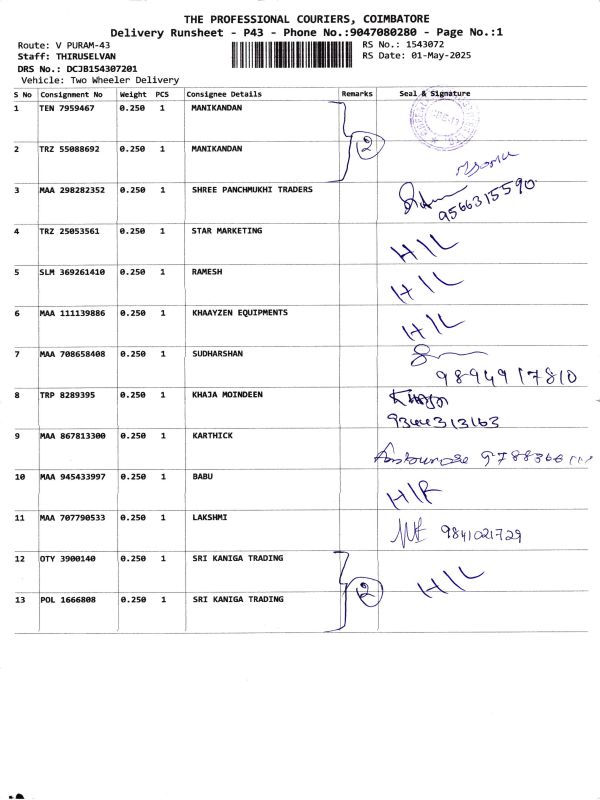 THE PROFESSIONAL COURIERS, COIMBATORE
Delivery Runsheet - P43 - Phone No.:9047080280 - Page No.:1
Route: V PURAM-43 RS No.: 1543072
Staff: THIRUSELVAN RS Date: 01-May-2025
DRS No.: DCJB154307201
Vehicle: Two Wheeler Delivery
S No Consignment No Weight PCS Consignee Details Remarks Seal & Signature
1 TEN 7959467 0.250 1 MANIKANDAN
2
2 TRZ 55088692 0.250 1 MANIKANDAN
3 MAA 298282352 0.250 1 SHREE PANCHMUKHI TRADERS
9566315590
4 TRZ 25053561 0.250 1 STAR MARKETING
H/L
5 SLM 369261410 0.250 1 RAMESH
H/L
6 MAA 111139886 0.250 1 KHAAYZEN EQUIPMENTS
H/L
7 MAA 708658408 0.250 1 SUDHARSHAN
9894917810
8 TRP 8289395 0.250 1 KHAJA MOINDEEN
9344313163
9 MAA 867813300 0.250 1 KARTHICK
10 MAA 945433997 0.250 1 BABU
H/R
11 MAA 707790533 0.250 1 LAKSHMI
9841021729
12 OTY 3900140 0.250 1 SRI KANIGA TRADING
2 H/L
13 POL 1666808 0.250 1 SRI KANIGA TRADING